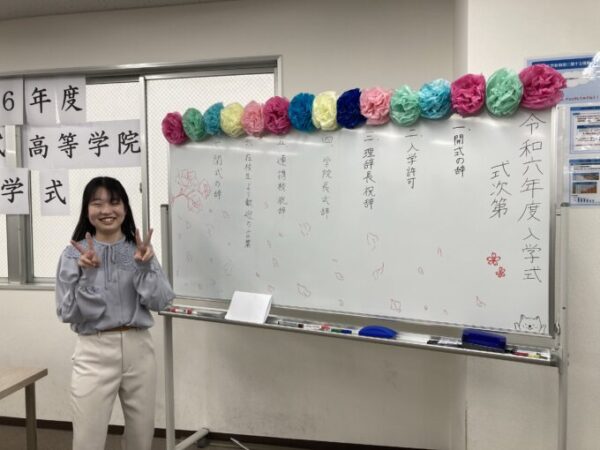 6年度
高等学院
学式
令和六年度入学式
式次第
一、開式の辞
二、入学許可
三、理辞長祝辞
四、学院長式辞
五、連携校祝辞
六、在校生より歓迎の言葉
閉式の辞